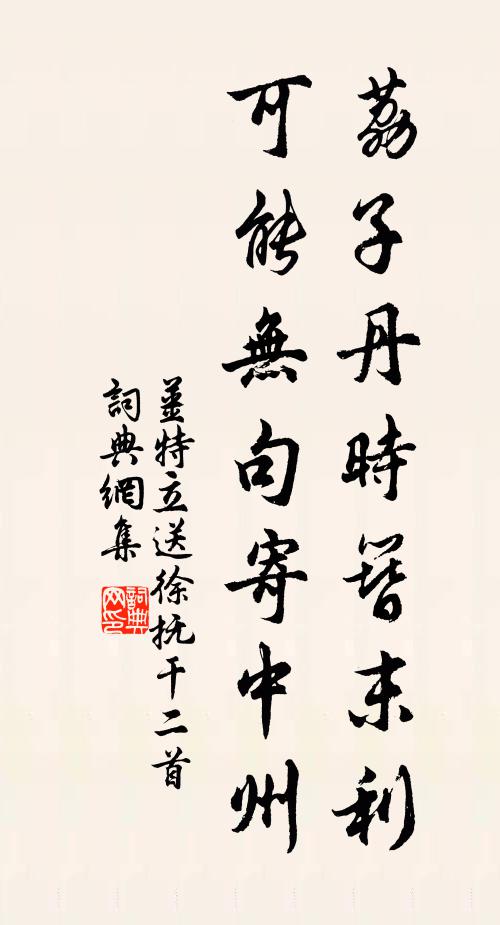 荔子丹時簪末利
可能無句寄中州
薑特立送徐撫干二首
詞典網集
詞典网印